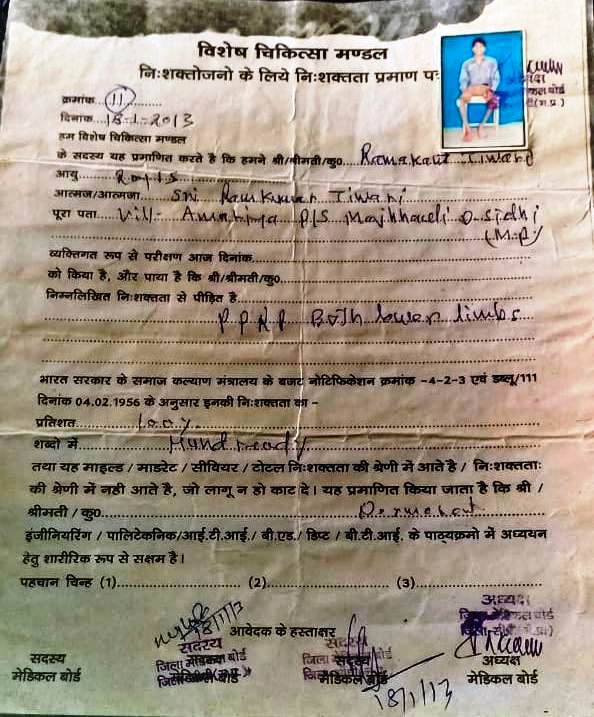 विशेष चिकित्सा मण्डल
निःशक्तोजनो के लिये निःशक्तता प्रमाण प
क्रमांक 11
दिनांक 18-1-2013
हम विशेष चिकित्सा मण्डल
के सदस्य यह प्रमाणित करते है कि हमने श्री/श्रीमती/कु0 Ramakant Tiwari
आयु
आत्मज/आत्मजा Sri Ramkumar Tiwari
पूरा पता Vill- P/S Majhhauli D-Sidhi
(M.P)
व्यक्तिगत रूप से परीक्षण आज दिनांक
को किया है, और पाया है कि श्री/श्रीमती/कु0
निम्नलिखित निःशक्तता से पीड़ित है
P.P.R.P Both lower limbs
भारत सरकार के समाज कल्याण मंत्रालय के बजट नोटिफिकेशन क्रमांक -4-2-3 एवं डब्लू/111
दिनांक 04.02.1956 के अनुसार इनकी निःशक्तता का -
प्रतिशत 100%
शब्दो में
तथा यह माइल्ड / माडरेट / सीवियर / टोटल निःशक्तता की श्रेणी में आते है / निःशक्तताः
की श्रेणी में नही आते है, जो लागू न हो काट दे। यह प्रमाणित किया जाता है कि श्री /
श्रीमती / कु0
इंजीनियरिंग / पालिटेकनिक/आई.टी.आई./ बी.एड./ डिप्ट / बी.टी.आई. के पाठ्यक्रमो में अध्ययन
हेतु शारीरिक रूप से सक्षम है।
पहचान चिन्ह (1) (2) (3)
अध्यक्ष
18/1/13 आवेदक के हस्ताक्षर
सदस्य सदस्य
सदस्य जिला मेडिकल बोर्ड सदस्य अध्यक्ष
मेडिकल बोर्ड मेडिकल बोर्ड मेडिकल बोर्ड
18/1/13